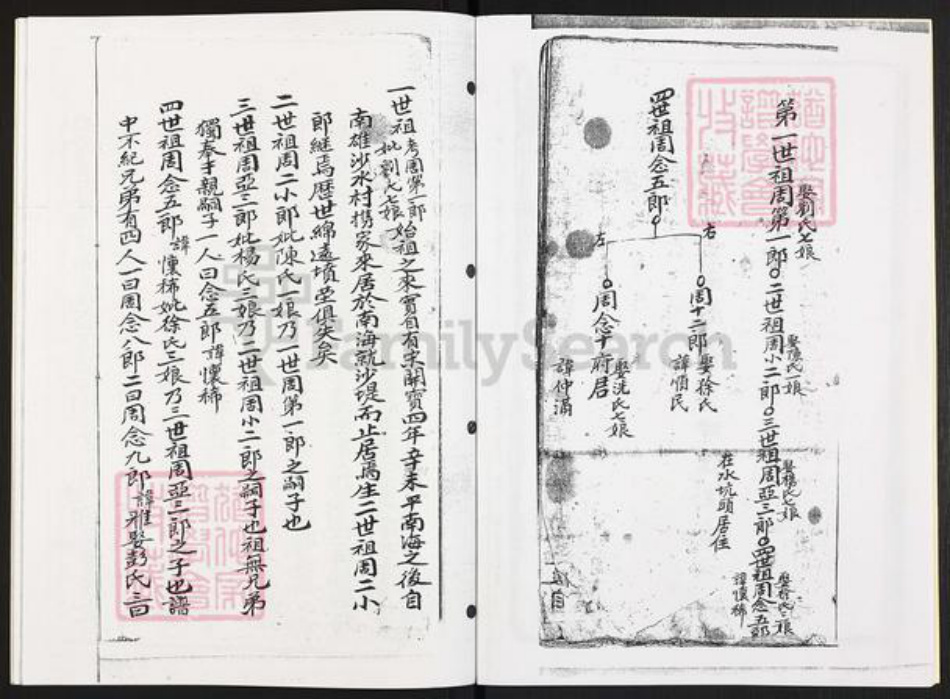 第一世祖周第一郎 娶劉氏七娘
二世祖周小二郎 娶陳氏一娘
三世祖周亞三郎 娶楊氏七娘
四世祖周念五郎 娶徐氏三娘 諱懷稀
在水坑頭居住
四世祖周念五郎
右 周十二郎 娶徐氏 諱順民
左 周念十府君 娶冼氏七娘
諱仲滿
一世祖考周第一郎妣劉氏七娘始祖之來實自有宋開寶四年辛未平南海之後自
南雄沙水村携家來居於南海就沙堤而止居焉生二世祖周二小
郎継焉歷世綿遠墳塋俱失矣
二世祖周二小郎妣陳氏一娘乃一世周第一郎之嗣子也
三世祖周亞三郎妣楊氏三娘乃二世祖周小二郎之嗣子也祖無兄弟
獨奉手親嗣子一人曰念五郎諱懷稀
四世祖周念五郎諱懷稀妣徐氏三娘乃三世祖周亞三郎之子也譜
中不紀兄弟有四人一曰周念八郎二曰周念九郎諱雅娶彭氏三曰
FamilySearch